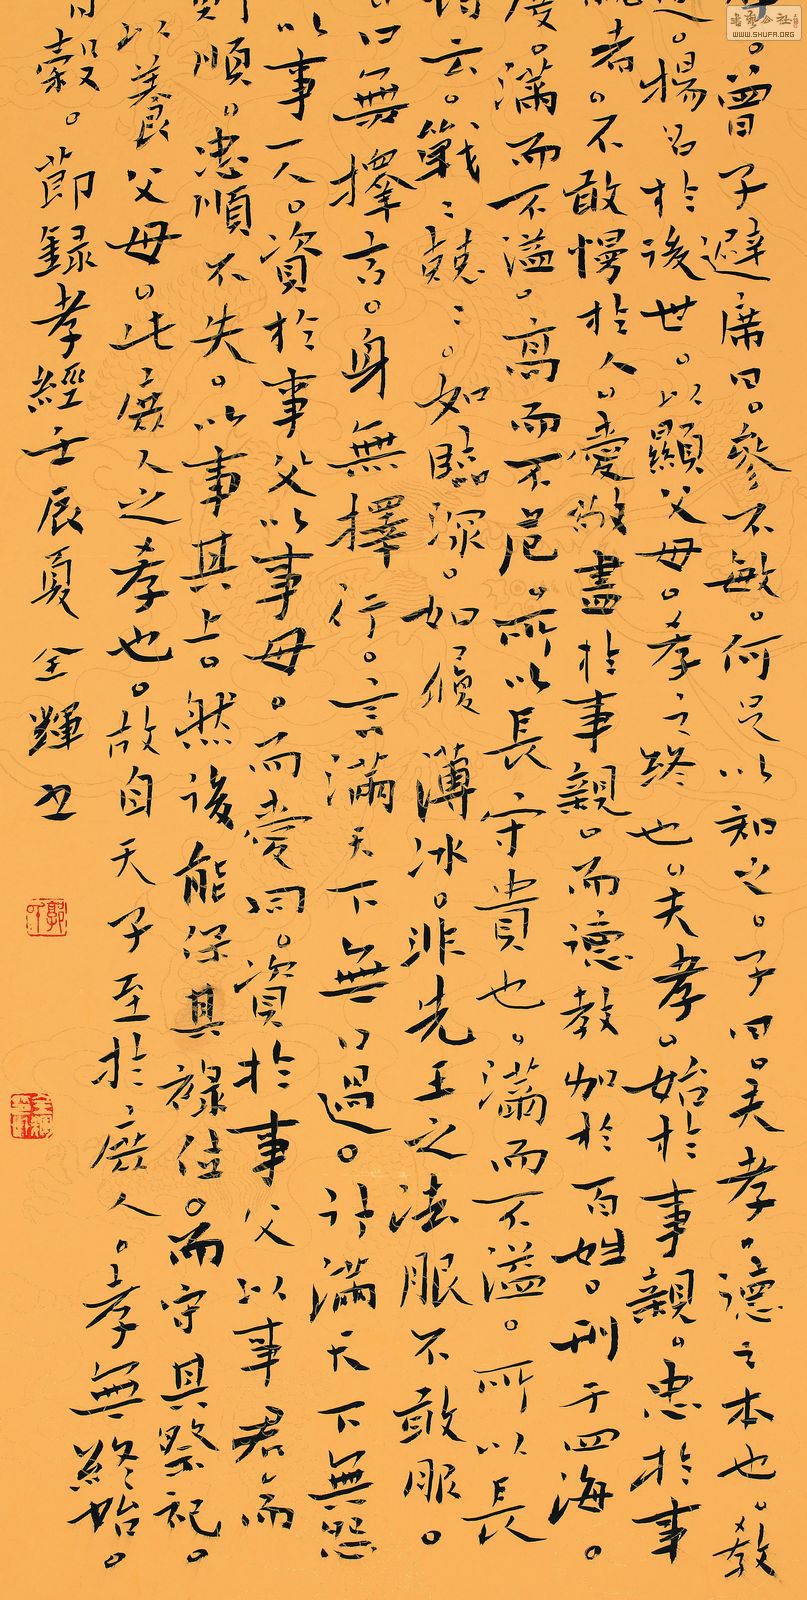 曾子避席曰。參不敏。何足以知之。子曰。夫孝。德之本也。教
揚名於後世。以顯父母。孝之終也。夫孝。始於事親。忠於事
者。不敢慢於人。愛敬盡於事親。而德教加於百姓。刑于四海。
度。滿而不溢。高而不危。所以長守貴也。滿而不溢。所以長
云。戰〻兢〻。如臨深。如履薄冰。非先王之法服不敢服。
口無擇言。身無擇行。言滿天下無口過。行滿天下無怨
以事人。資於事父以事母。而愛同。資於事父以事君。而
順。忠順不失。以事其上。然後能保其祿位。而守其祭祀。
以養父母。此庶人之孝也。故自天子至於庶人。孝無終始。
穀。節録孝經壬辰夏全輝书
書藝公社
WWW.SHUFA.ORG